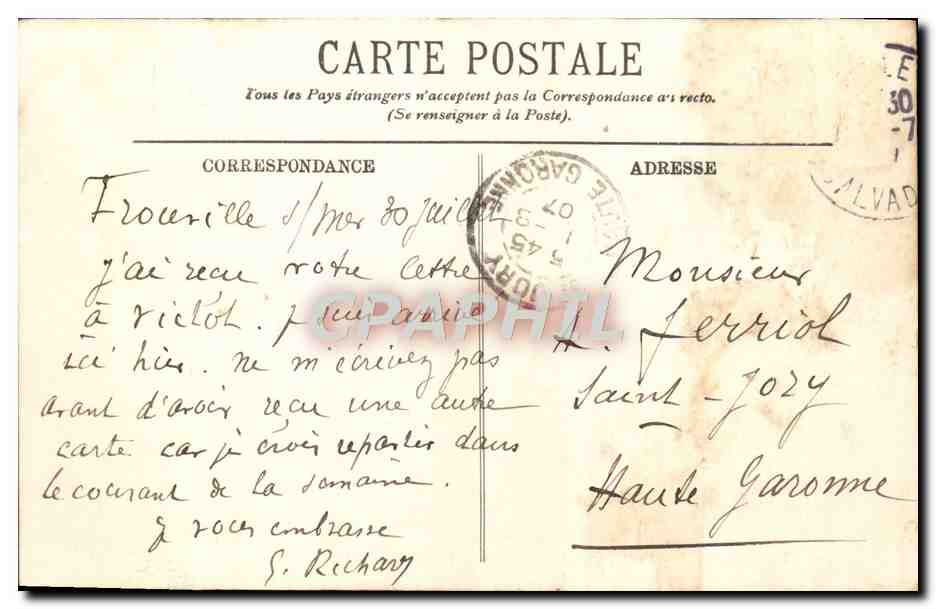 CARTE POSTALE
Tous les Pays étrangers n'acceptent pas la Correspondance au recto.
(Se renseigner à la Poste).
CORRESPONDANCE
Trouville s/mer 30 juillet
j'ai reçu votre lettre
à Victot. je suis arrivé
ici hier. ne m'écrivez pas
avant d'avoir reçu une autre
carte car je crois repartir dans
le courant de la semaine.
Je vous embrasse
G. Richard
ADRESSE
Monsieur
A. Ferriol
Saint-Jory
Haute Garonne
JORY
HTE GARONNE
3 45
1 -8
07
LE
30
-7
CALVAD
CPAPHIL